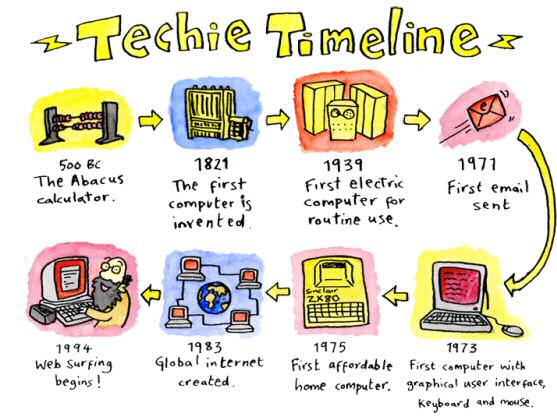 Techie Timeline
500 BC
The Abacus
calculator.
1821
The first
computer is
invented.
1939
First electric
computer for
routine use.
e
1971
First email
sent
1973
First computer with
graphical user interface,
Keyboard and mouse.
Sinclair
ZX80
1975
First affordable
home computer.
1983
Global internet
created.
1994
Web Surfing
begins!